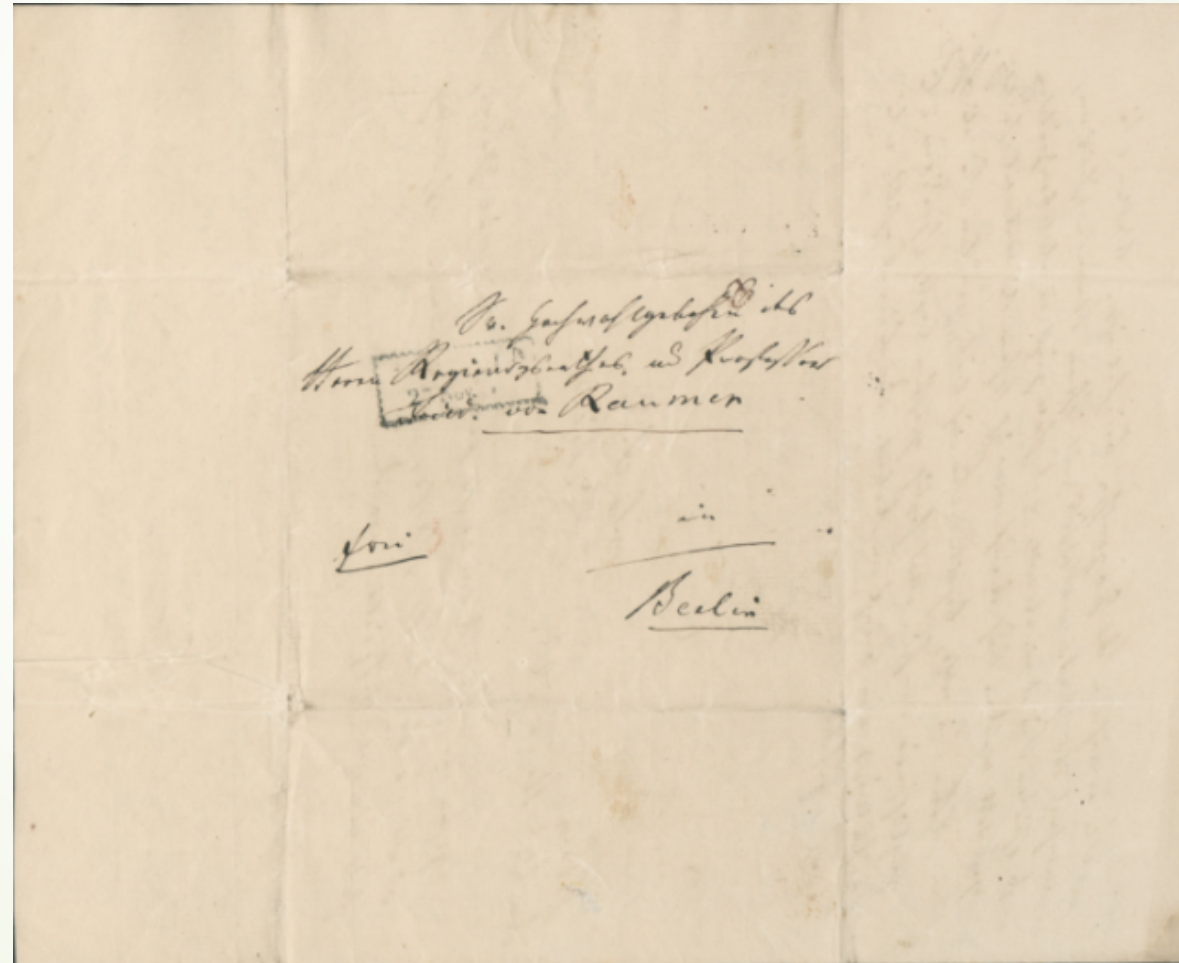 Sr. Hochwohlgeboren des
Herrn Regierungsrathes und Professor
von Raumer
frei
in
Berlin